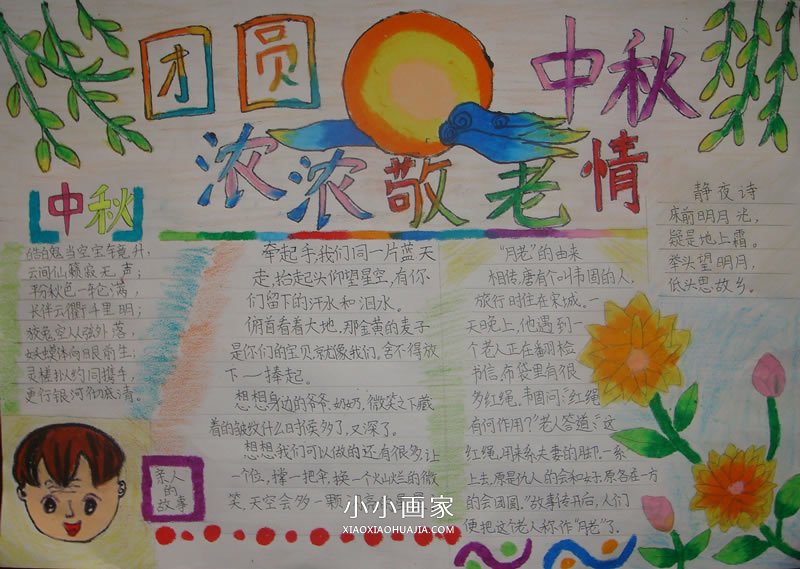 团圆
中秋
浓浓敬老情
中秋
皓魄当空宝镜升,
云间仙籁寂无声;
平分秋色一轮满,
长伴云衢千里明;
狡兔空从弦外落,
妖蟆休向眼前生;
灵槎拟约同携手,
更待银河彻底清。
牵起手,我们同一片蓝天
走,抬起头仰望星空,有你
们留下的汗水和泪水。
俯首看着大地,那金黄的麦子
是你们的宝贝就像我们,舍不得放
下一捧起。
想想身边的爷爷,奶奶,微笑之下藏
着的皱纹什么时候多了,又深了。
想想我们可以做的还有很多让
一个位,撑一把伞,换一个火山烂的微
笑,天空会多一颗
亲人
的
故事
"月老"的由来
相传唐有个叫韦固的人,
旅行时住在宋城。一
天晚上,他遇到一
个老人正在翻检
书信,布袋里有很
多红绳,韦固问:红绳
有何作用?"老人答道:"这
红绳,用来系夫妻的脚,一系
上去,原是仇人的会和好,原各在一方
的会团圆。"故事传开后,人们
便把这个老人称作"月老"了.
静夜诗
床前明月光,
疑是地上霜。
举头望明月,
低头思故乡。
小小画家
XIAOXIAOHUAJIA.COM